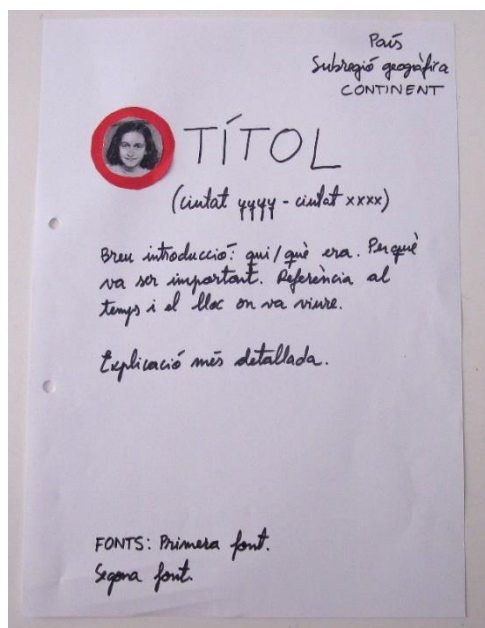 País
Subregió geogràfica
CONTINENT
TÍTOL
(ciutat yyyy - ciutat xxxx)
Breu introducció: qui/què era. Perquè
va ser important. Referència al
temps i el lloc on va viure.
Explicació més detallada.
FONTS: Primera font.
Segona font.